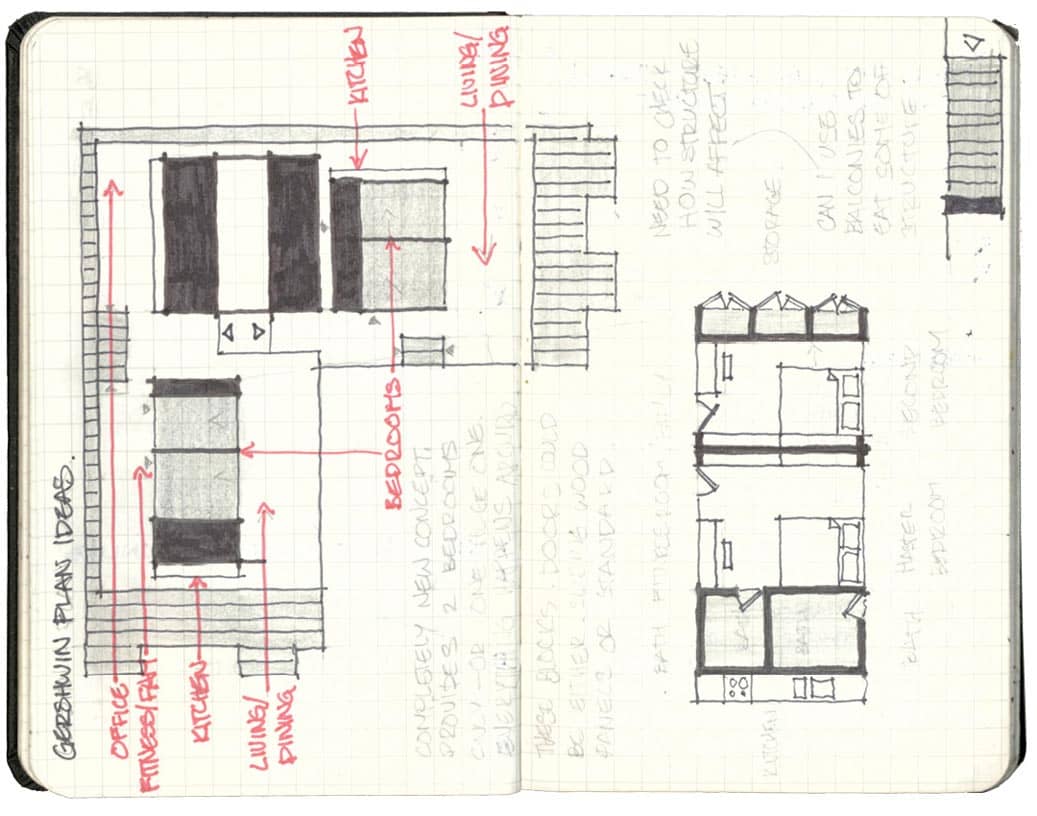 GERSHWIN PLAN IDEAS.
OFFICE
KITCHEN
LIVING/
DINING
BEDROOMS
KITCHEN
LIVING/
DINING
COMPLETELY NEW CONCEPT.
PROVIDES 2 BEDROOMS
ONLY - OR ONE HUGE ONE.
EVERYTHING HAPPENS AROUND
THESE BLOCKS. DOORS COULD
BE EITHER SLIDING WOOD
PANELS OR STANDARD.
NEED TO CHECK
HOW STRUCTURE
WILL AFFECT.
STORAGE.
CAN I USE
BALCONIES TO
EAT SOME OF
STRUCTURE
KITCHEN
BATH
BATH
BATH
MASTER
BEDROOM
SECOND
BEDROOM